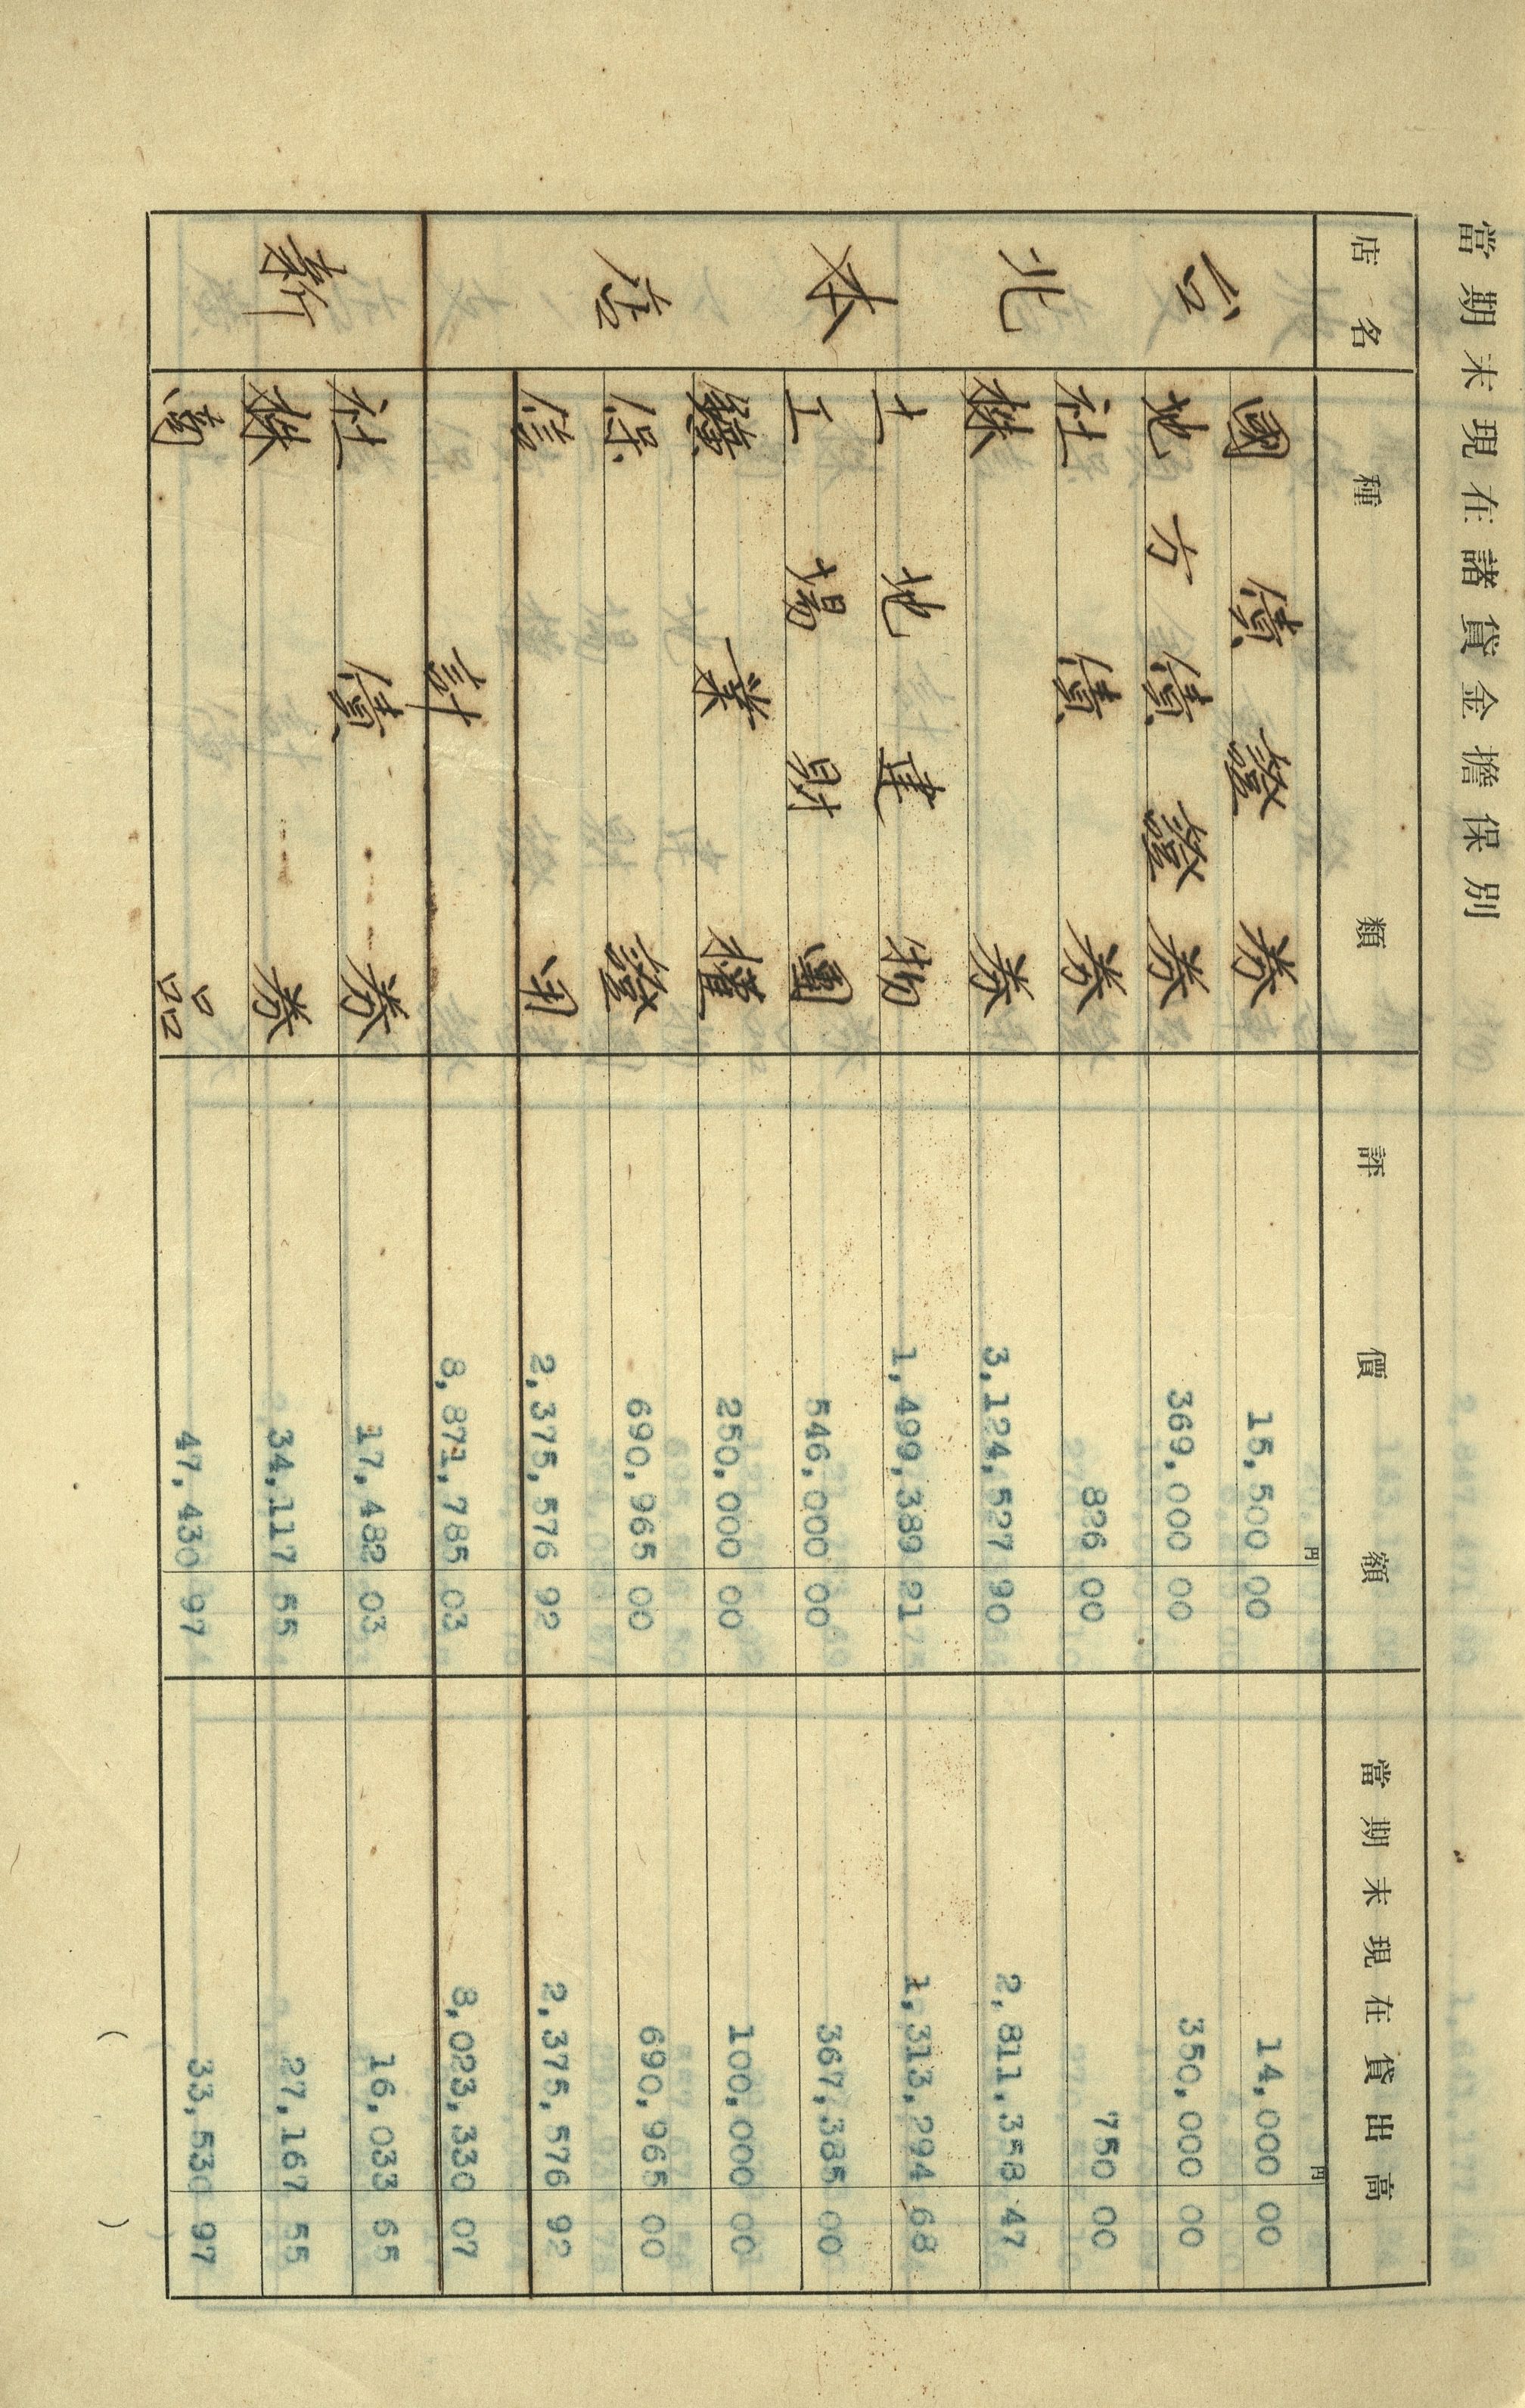 當期末現在諸貸金擔保別
店名 種類 評價額 當期末現在貸出高
台北本店 國債證券 15,500 00 14,000 00
地方債證券 369,000 00 350,000 00
社債券 826 00 750 00
株券 3,124,527 90 2,811,358 47
土地建物 1,499,389 21 1,313,294 68
工場財團 546,000 00 367,385 00
鑛業權 250,000 00 100,000 00
保證 690,965 00 690,965 00
信用 2,375,576 92 2,375,576 92
計 8,871,785 03 8,023,330 07
新 社債券 17,482 03 16,033 65
株券 34,117 55 27,167 55
商品 47,430 97 33,530 97